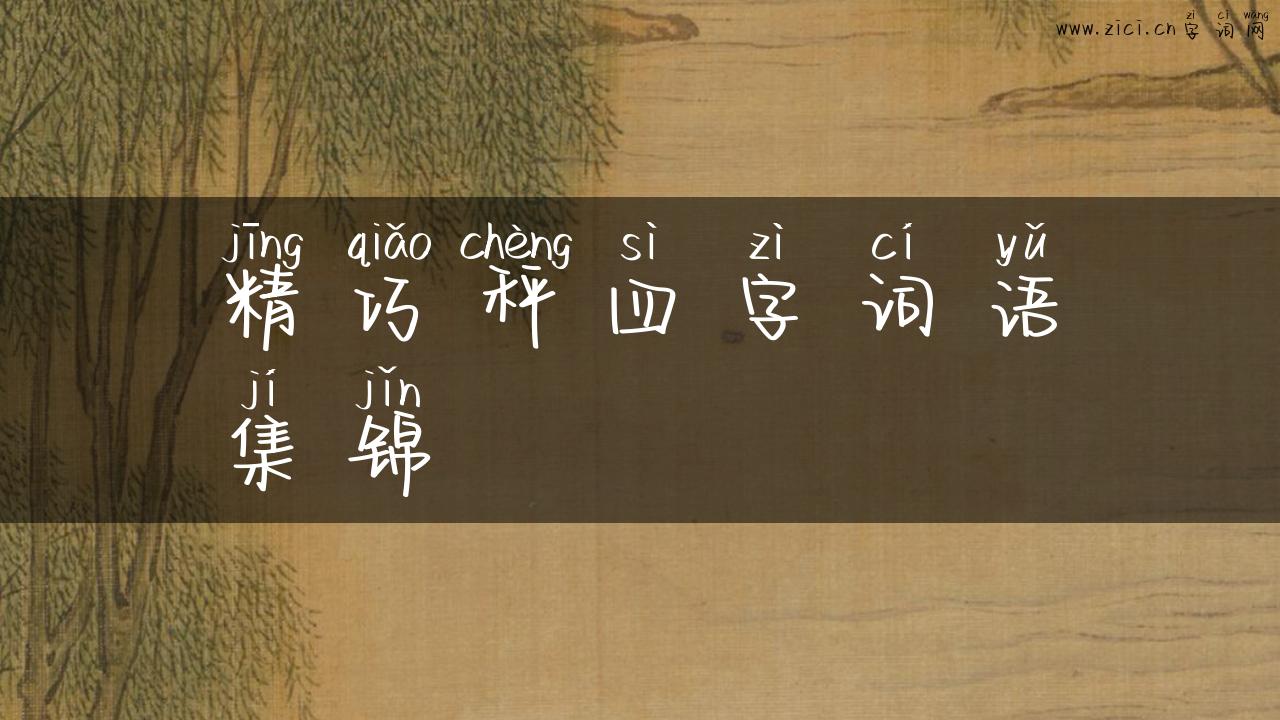 zì cí wǎng
www.zici.cn字词网
jīng qiǎo chèng sì zì cí yǔ
精巧秤四字词语
jí jǐn
集锦